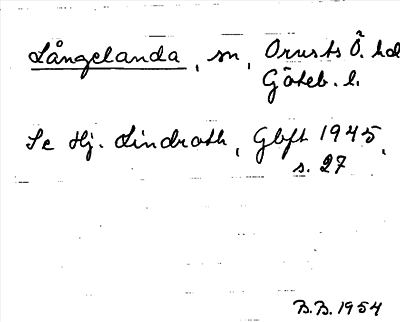 Långelanda, sn, Orusts Ö. hd
Göteb. l.
Se Hj. Lindroth, Gbft 1945,
s. 27
B.B. 1954